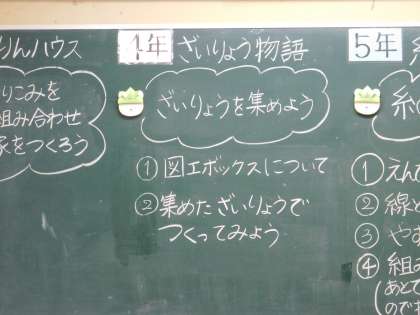 りんハウス
りこみを
組み合わせ
家をつくろう
4年 ざいりょう物語
ざいりょうを集めよう
①図工ボックスについて
②集めたざいりょうで
つくってみよう
5年
糸
①えん
②線と
③やす
④組み
(あとで
ので